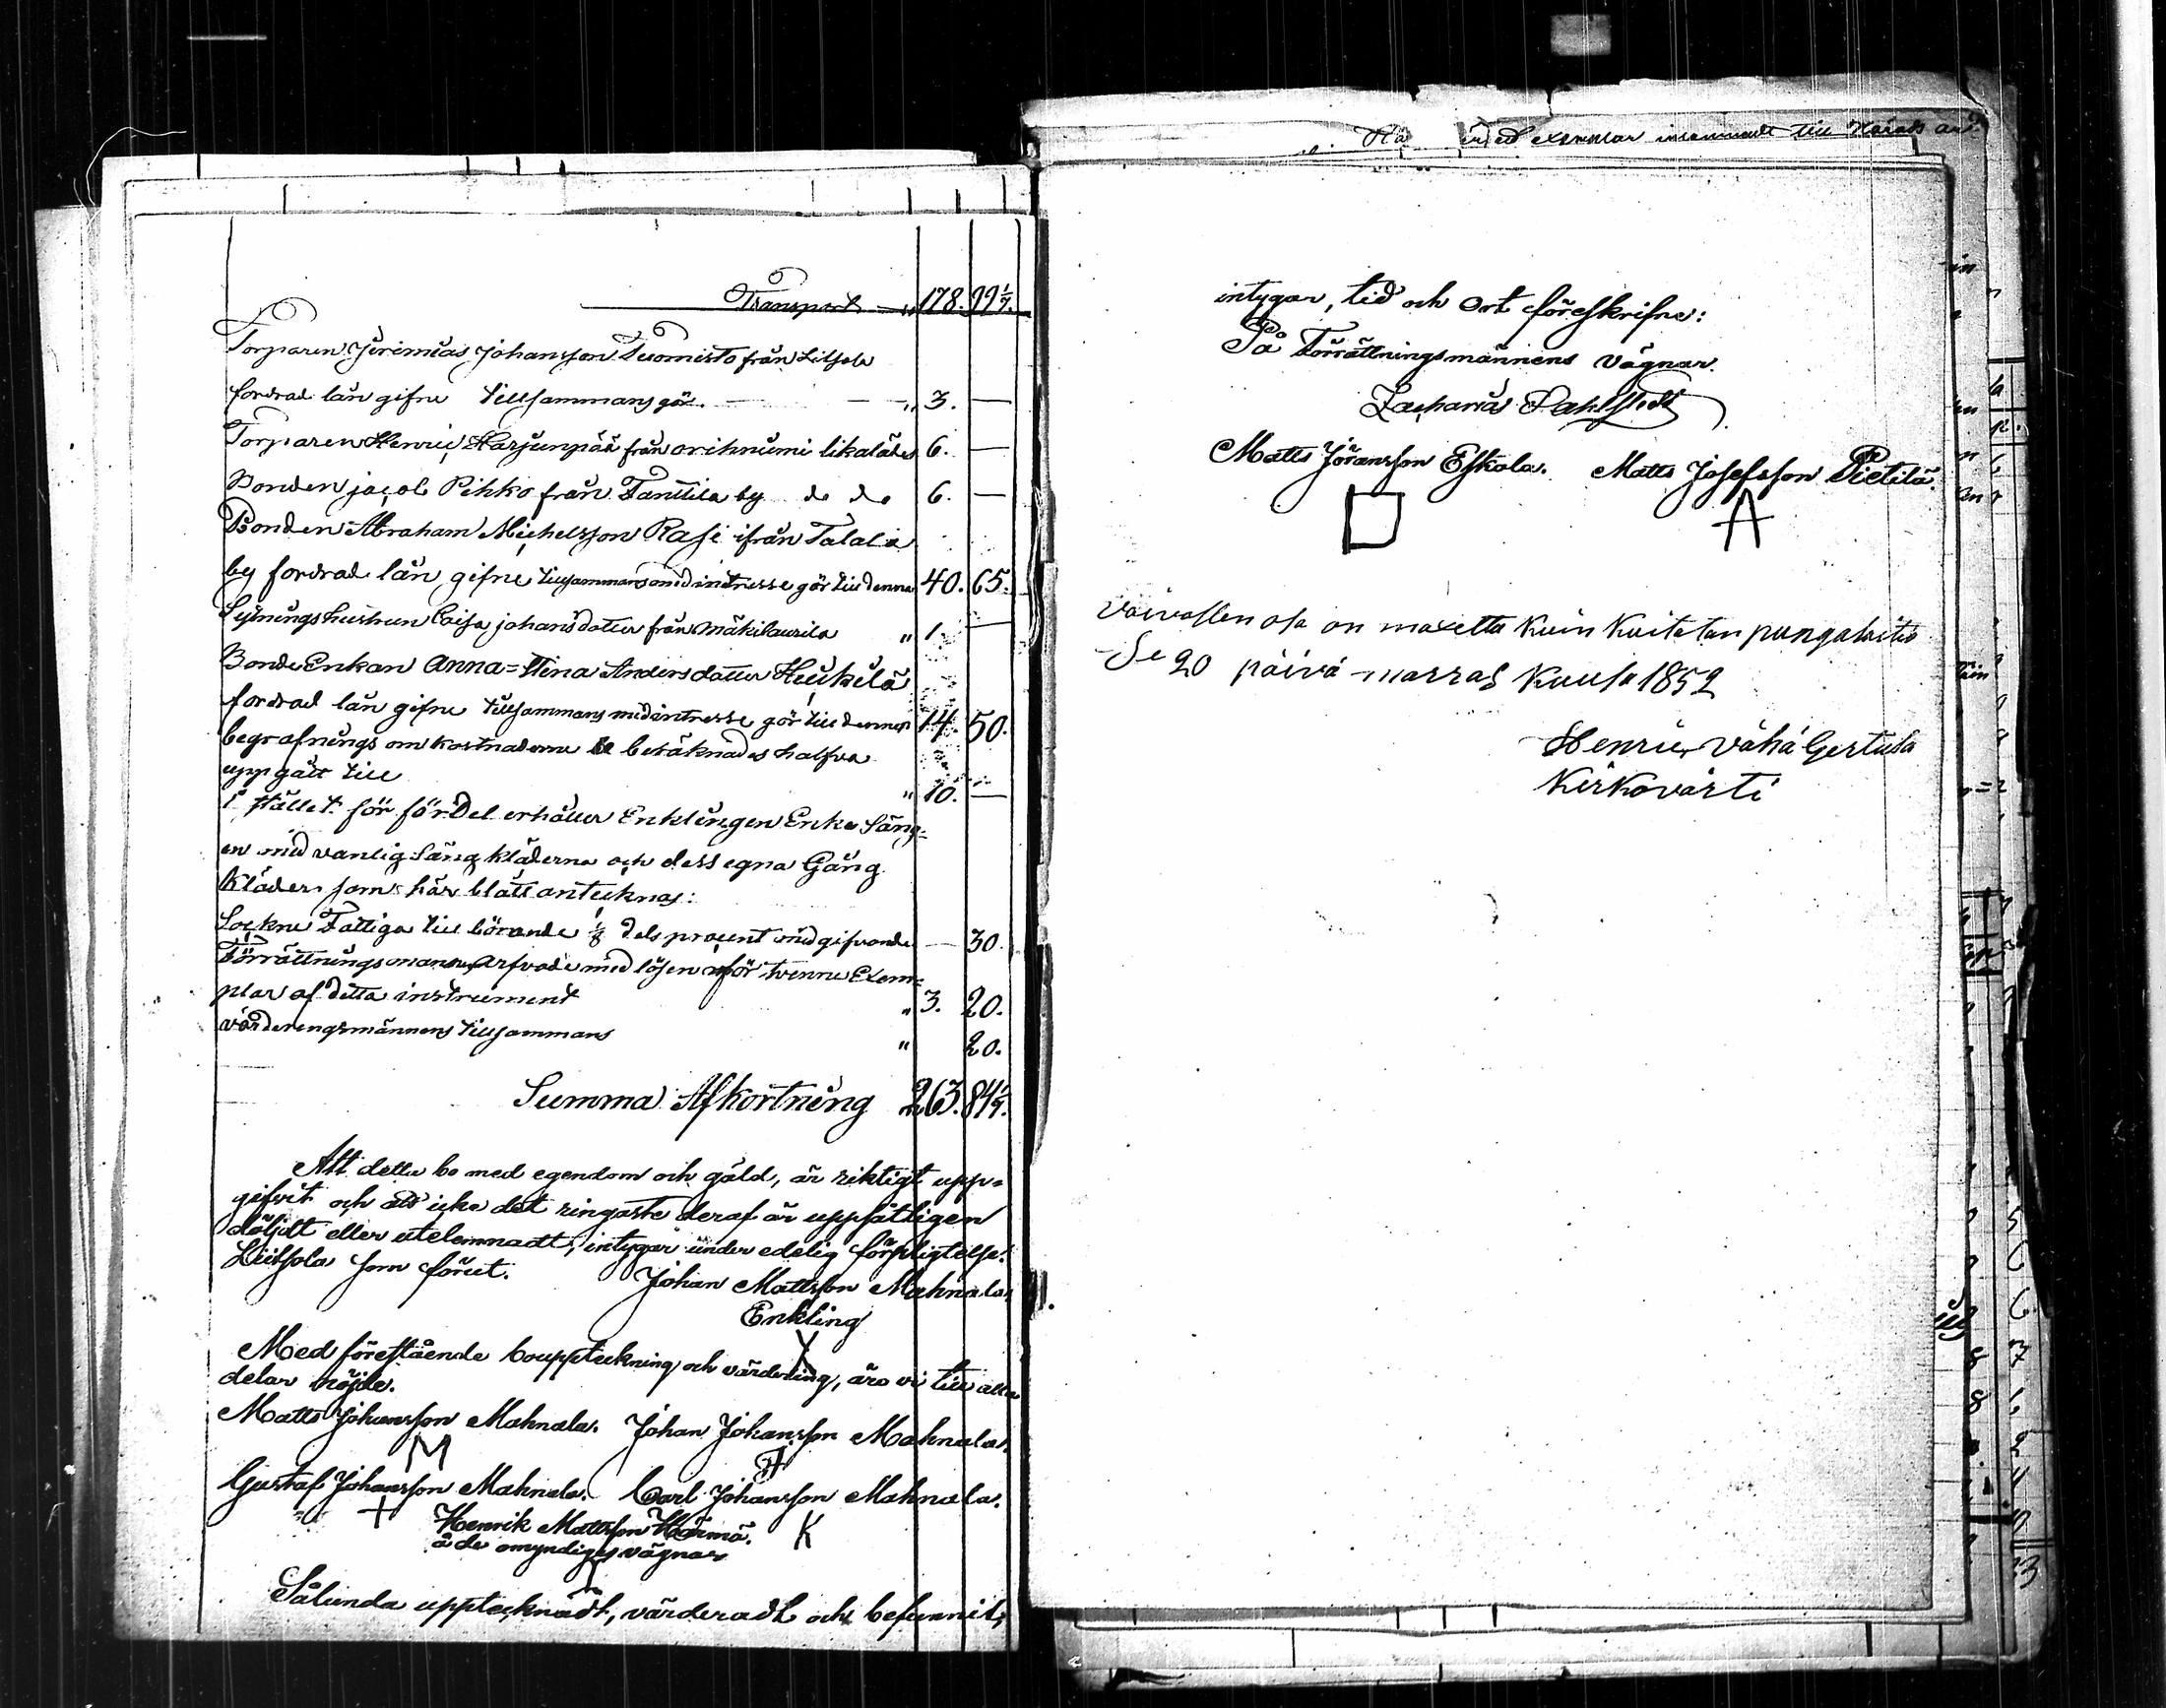 Transport — „ 178. 99 1/7.
Torparen Jeremias Johansson Tuomisto från Litsola
fordrad lån gifne tillsammans gör. — — „ 3. —
Torparen Henric Harjunpää från orihnumi likaledes 6. —
Bonden jacob Pihko från Tanttila by do do 6. —
Bonden Abraham Michelsson Rasi ifrån Talala
by fordrade lån gifne tillsammans med intresse gör till denna 40. 65.
Sytnings hustrun Caisa johansdotter från Mäkilaurila „ 1. —
Bonde Enkan Anna=Stina Andersdotter Heikilä
fordrad lån gifne tillsammans med intresse gör till denna 14. 50.
begrafnings omkostnaderne beräknades hafva
uppgått till „ 10. —
i stället för fördel erhåller Enklingen Enke Säng=
en med vanlig Sängkläderna och dess egna Gång
Kläder som här blått antecknas:
Sockne Fattiga till börande 1/8 dels procent med gifvande — 30.
Förrättningsmannens arfvode med lösen för tvenne Exem=
plar af detta instrument „ 3. 20.
värderingsmännens tillsammans „ 20.
Summa Afkortning 263. 84 1/7.
Att detta bo med egendom och gäld, är riktigt upp=
gifvit och att icke det ringaste deraf är uppsåtligen
döljdt eller utelemnadt, intygar under edelig förpligtelse.
Liitsola som förut. Johan Mattsson Mahnala
Enkling
Med förestående bouppteckning och värdering, äro vi till alla
delar nöjde.
Matts Johansson Mahnala. Johan Johansson Mahnala.
M H
Gustaf Johansson Mahnala. Carl Johansson Mahnala.
+ K
Henrik Mattsson Härmä.
å de omyndiges vägnar
Sålunda upptecknadt, värderadt och befunnit,
intygar, tid och Ort föreskrifne:
På Förrättningsmännens vägnar.
Zacharias Dahlstedt
Matts Jöransson Eskola. Matts Josefsson Pietilä.
A
vaivasten osa on maxettu Kuin Kuitetan pungalaitio
Se 20 päivä marras Kuusa 1852
Henric Vähä Gertula
Kirkovärti